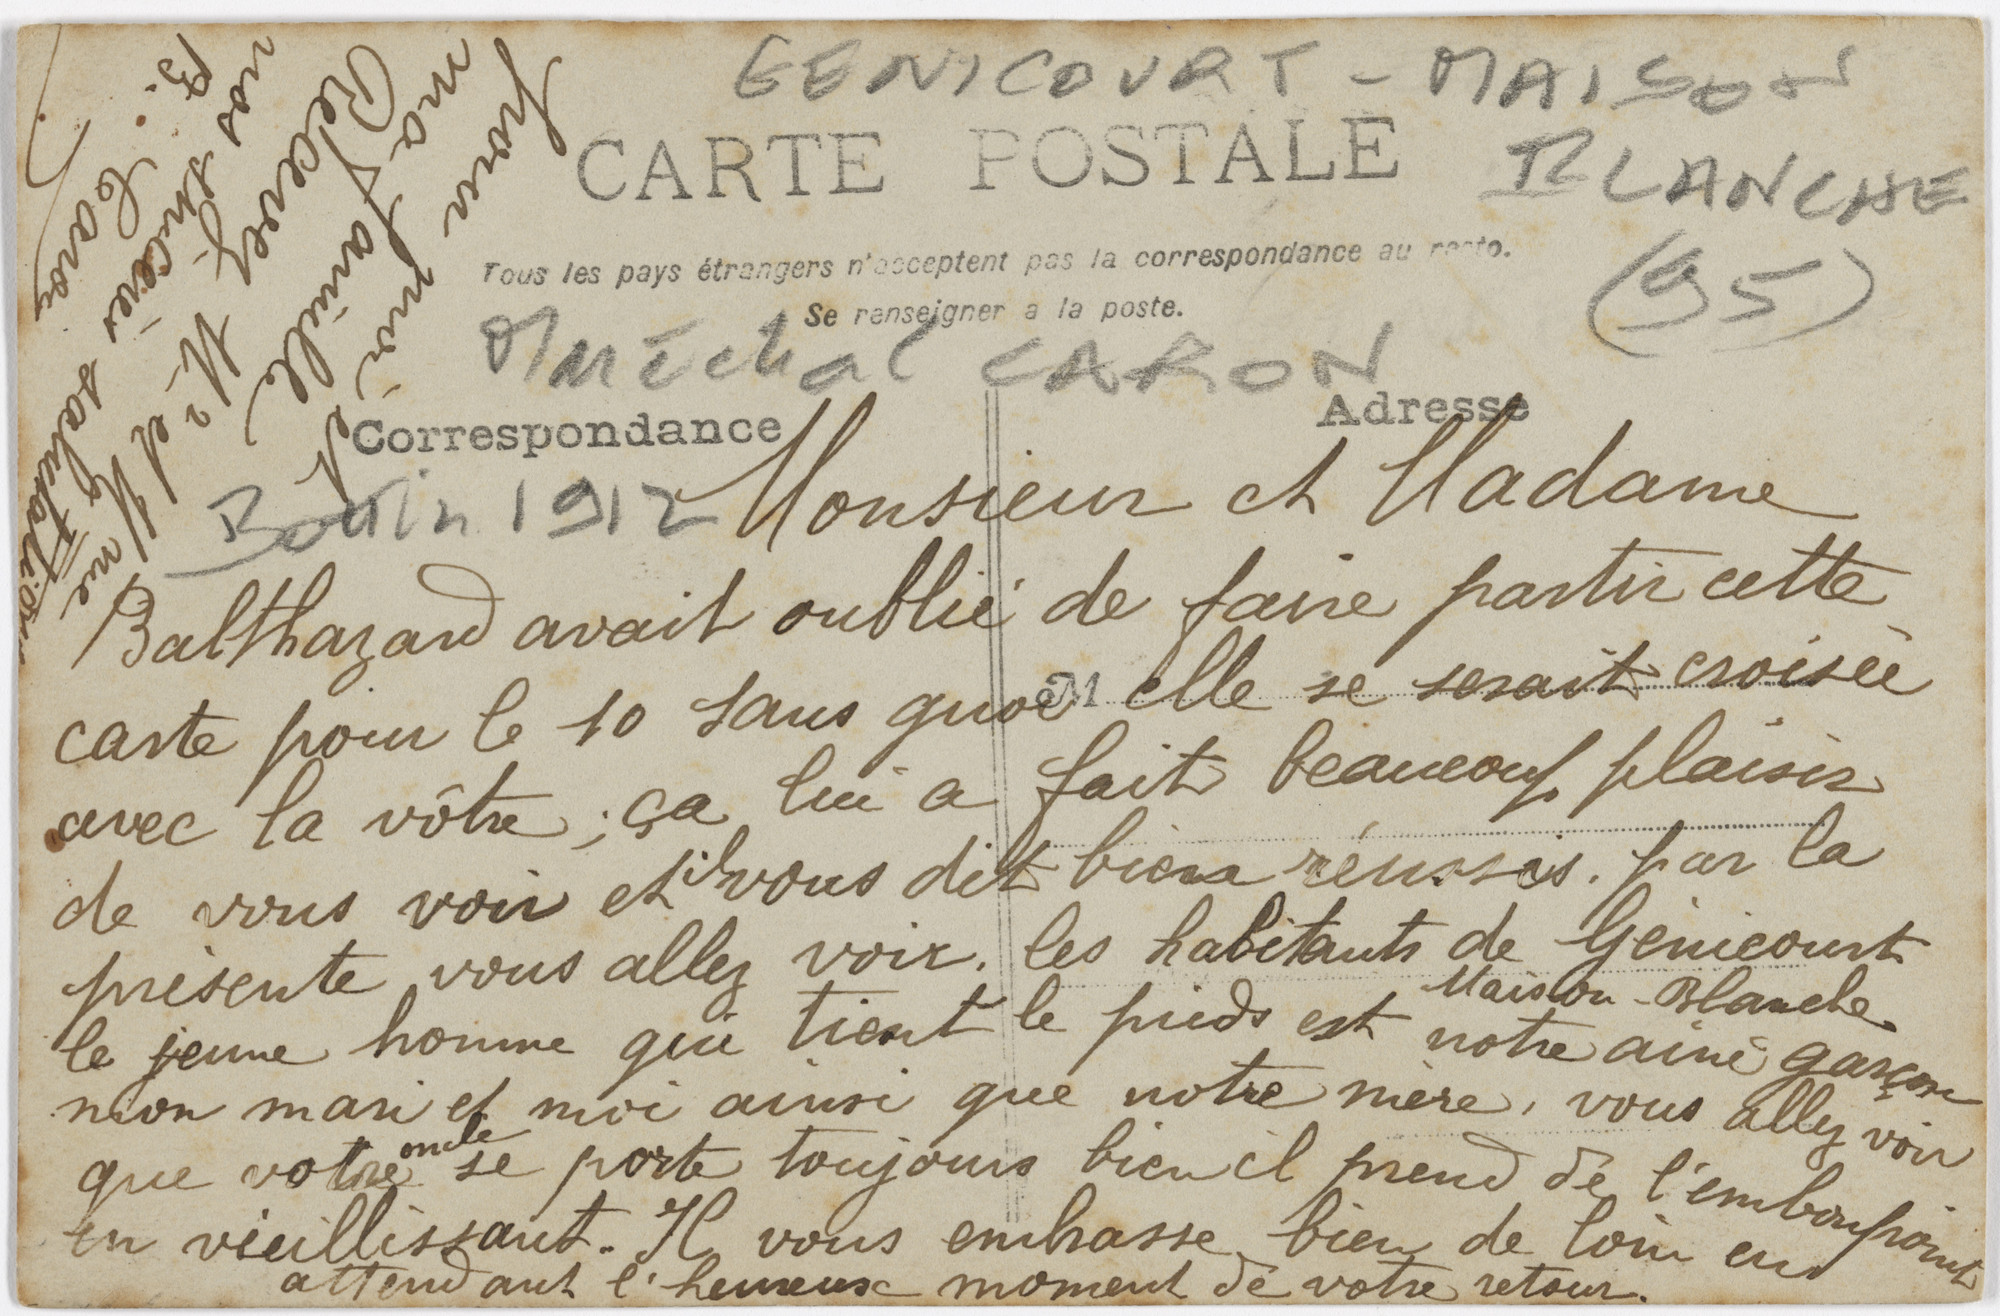 GENICOURT - MAISON
BLANCHE
(95)
CARTE POSTALE
Tous les pays étrangers n'acceptent pas la correspondance au recto.
Se renseigner a la poste.
Maréchal CARON
Correspondance
Adresse
Bottin 1912
Monsieur et Madame
Balthazard avait oublié de faire partir cette
carte pour le 10 sans quoi elle se serait croisée
M
avec la vôtre ; ça lui a fait beaucoup plaisir
de vous voir et il vous dit bien réussis. par la
présente vous allez voir. les habitants de Génicourt
Maison-Blanche
le jeune homme qui tient le pieds est notre ainé garçon
mon mari et moi ainsi que notre mère, vous allez voir
que votre oncle se porte toujours bien il prend de l'embonpoint
en vieillissant. Il vous embrasse bien de loin en
attendant l'heureux moment de votre retour.
pour moi et
ma famille
Recevez Mr et Mme
B. nos sincères salutations
Caron